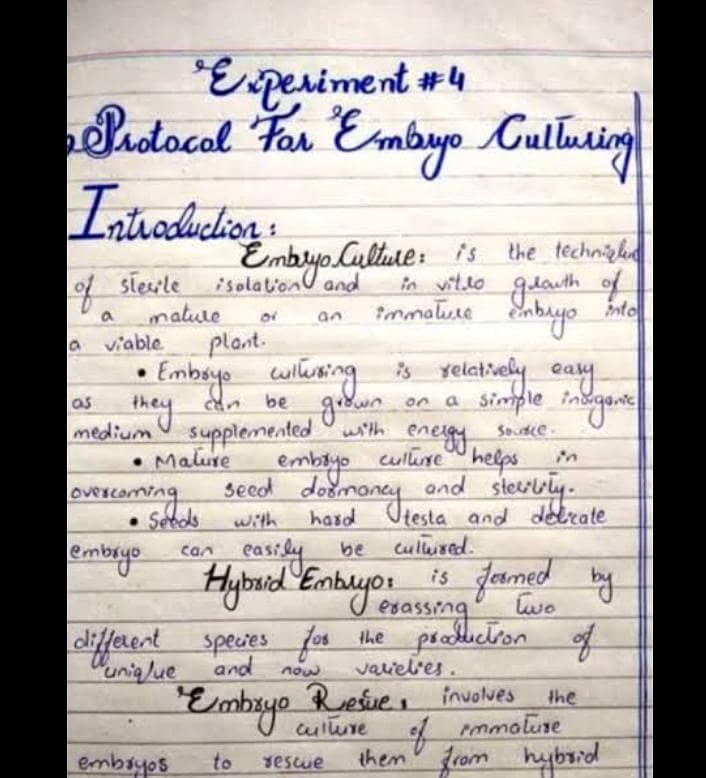 Experiment #4
Protocol For Embryo Culturing
Introduction:
Embryo Culture: is the technique
of sterile isolation and in vitro growth of
a mature or an immature embryo into
a viable plant.
• Embryo culturing is relatively easy
as they can be grown on a simple inorganic
medium supplemented with energy source.
• Mature embryo culture helps in
overcoming seed dormancy and sterility.
• Seeds with hard testa and delicate
embryo can easily be cultured.
Hybrid Embryo: is formed by
crossing two
different species for the production of
unique and new varieties.
Embryo Resue: involves the
culture of immature
embryos to rescue them from hybrid